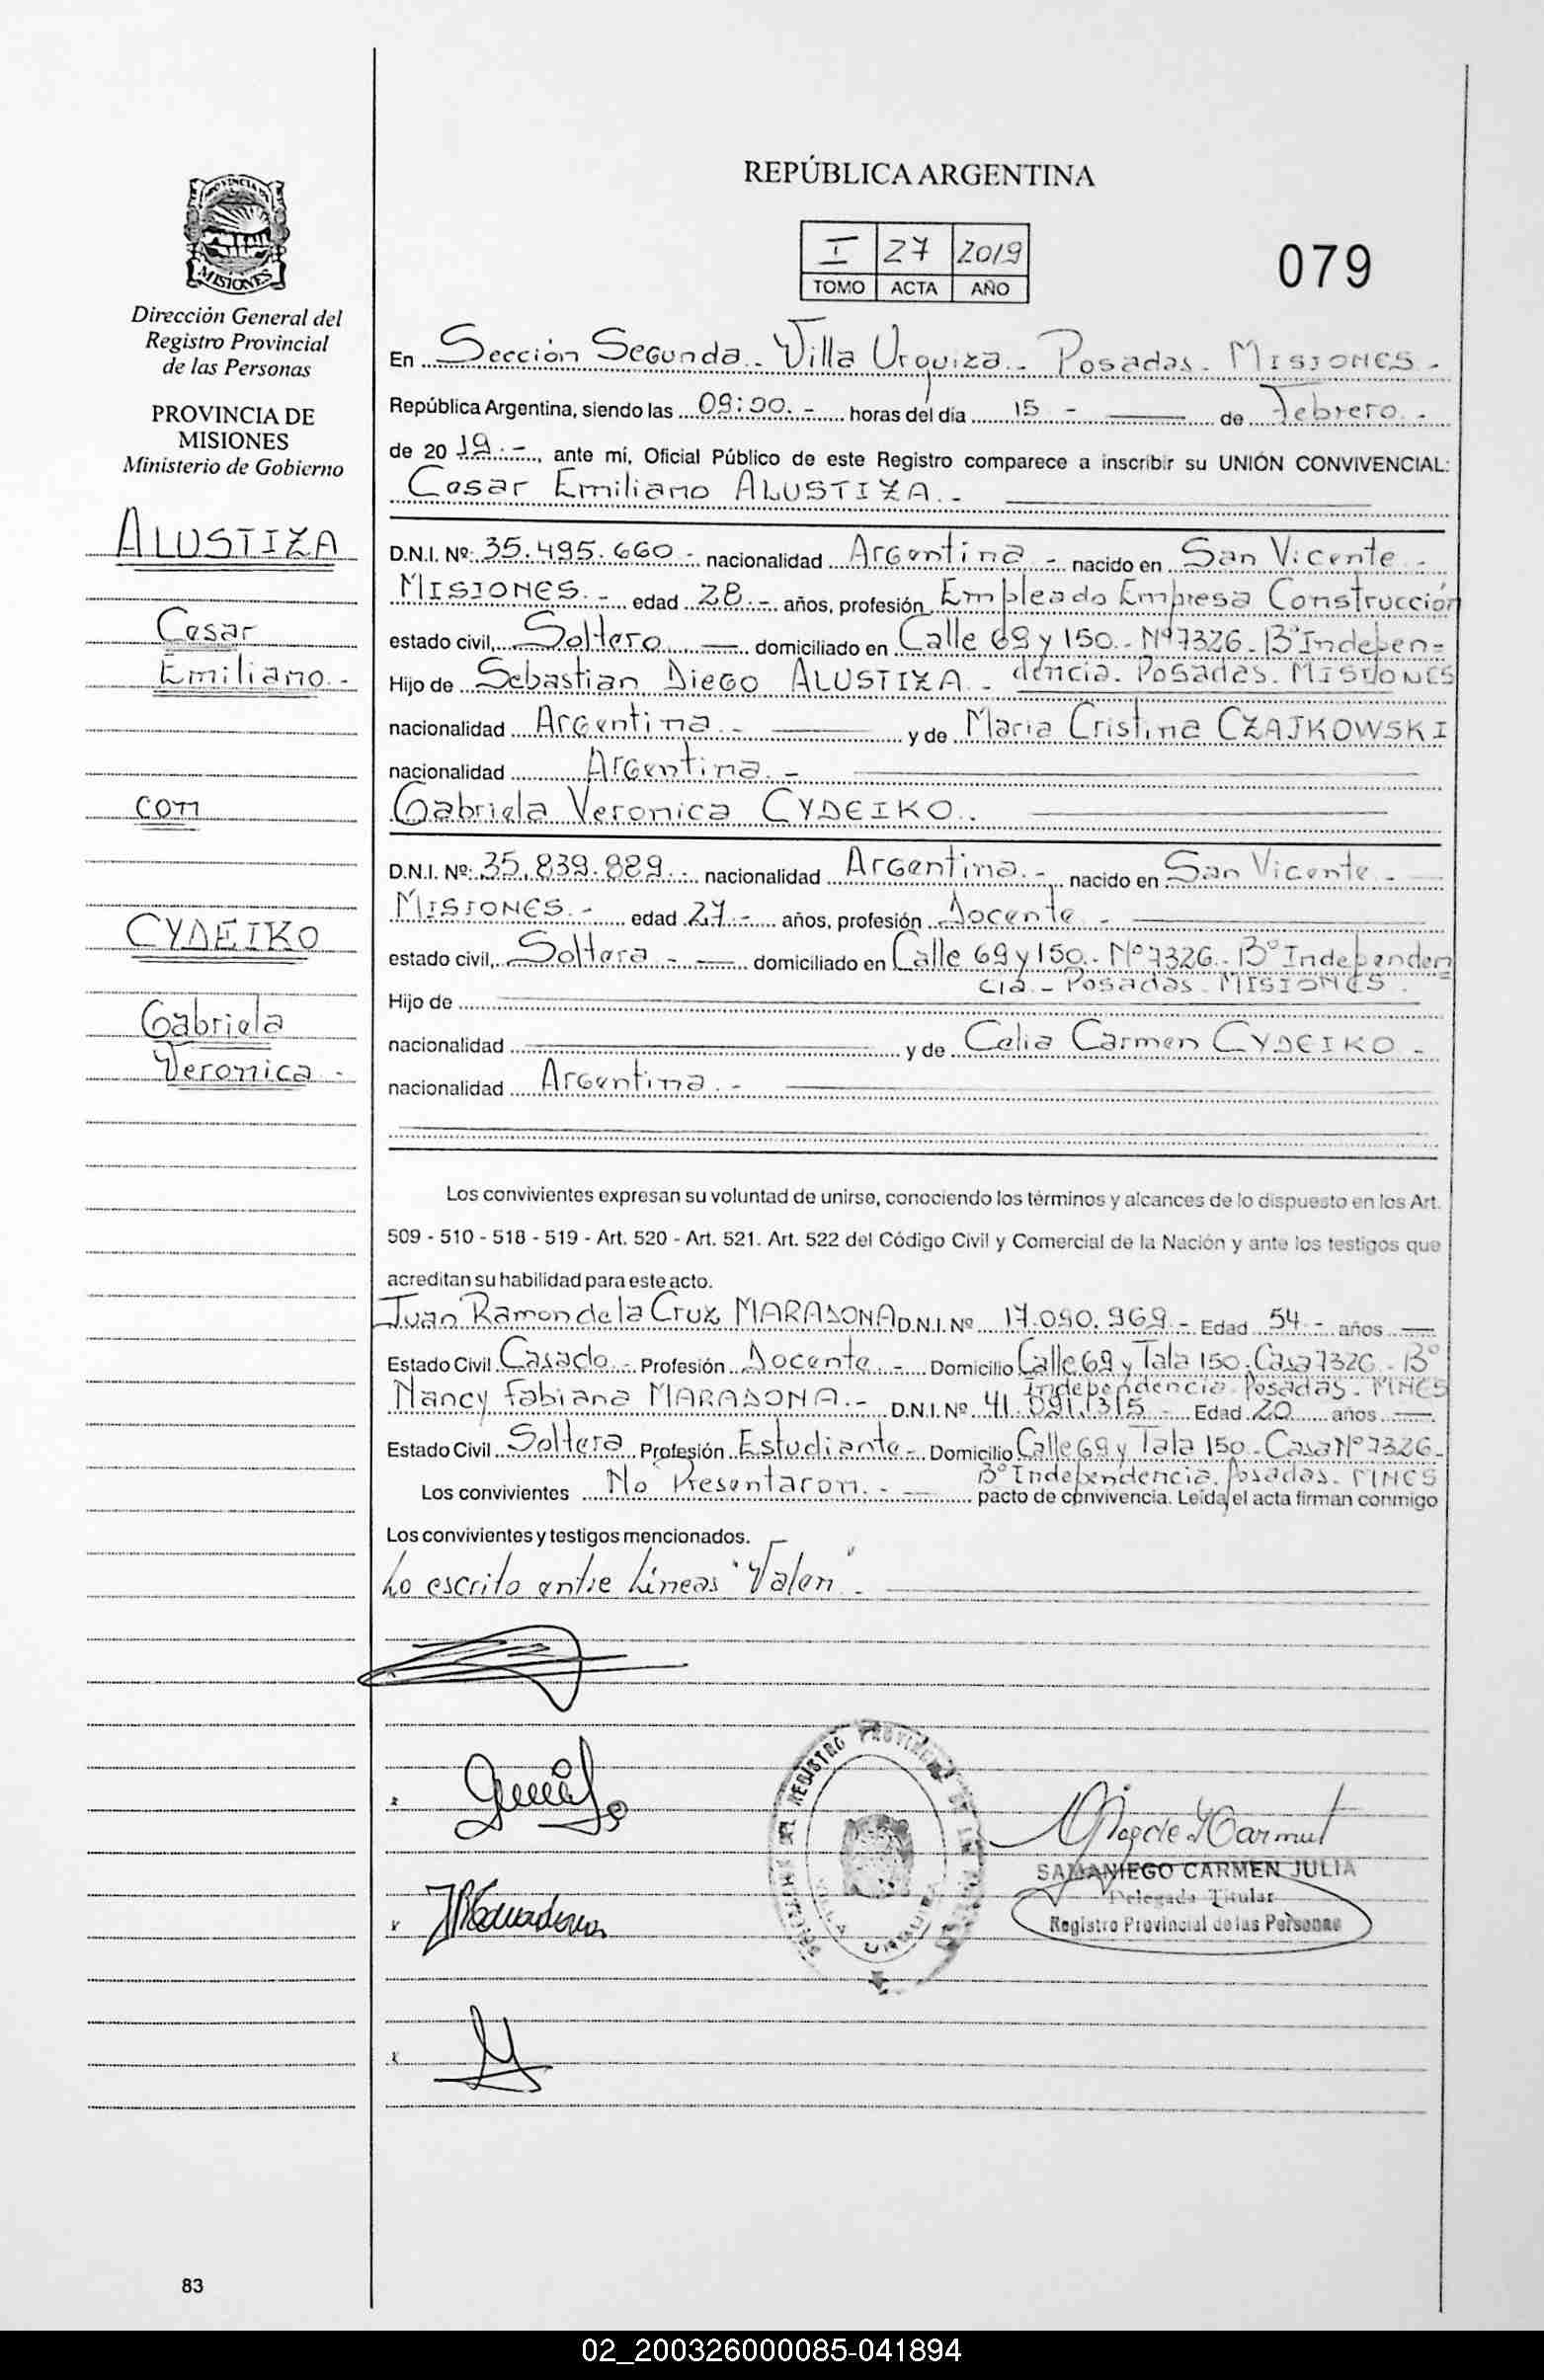 REPÚBLICA ARGENTINA
I 27 2019
TOMO ACTA AÑO
079
PROVINCIA DE
MISIONES
Dirección General del
Registro Provincial
de las Personas
PROVINCIA DE
MISIONES
Ministerio de Gobierno
ALUSTIZA
Cesar
Emiliano.-
con
CYDEIKO
Gabriela
Veronica.-
En Sección Segunda.- Villa Urquiza.- Posadas.- MISIONES.-
República Argentina, siendo las 09:00.- horas del día 15.- de Febrero.-
de 2019.-, ante mi, Oficial Público de este Registro comparece a inscribir su UNIÓN CONVIVENCIAL:
Cesar Emiliano ALUSTIZA.-
D.N.I. Nº: 35.495.660.- nacionalidad Argentina.- nacido en San Vicente.-
MISIONES.- edad 28.- años, profesión Empleado Empresa Construcción
estado civil, Soltero domiciliado en Calle 69 y 150.- Nº7326.- Bº Indepen=
dencia. Posadas. MISIONES
Hijo de Sebastian Diego ALUSTIZA.-
nacionalidad Argentina.- y de Maria Cristina CZAJKOWSKI
nacionalidad Argentina.-
Gabriela Veronica CYDEIKO.
D.N.I. Nº: 35.839.889.- nacionalidad Argentina.- nacido en San Vicente.-
MISIONES.- edad 27.- años, profesión Docente.-
estado civil, Soltera.- domiciliado en Calle 69 y 150.- Nº7326.- Bº Independen=
cia.- Posadas. MISIONES.
Hijo de
nacionalidad y de Celia Carmen CYDEIKO.-
nacionalidad Argentina.-
Los convivientes expresan su voluntad de unirse, conociendo los términos y alcances de lo dispuesto en los Art.
509 - 510 - 518 - 519 - Art. 520 - Art. 521. Art. 522 del Código Civil y Comercial de la Nación y ante los testigos que
acreditan su habilidad para este acto.
Juan Ramon de la Cruz MARADONA D.N.I. Nº 17.090.969.- Edad 54.- años
Estado Civil Casado.- Profesión Docente.- Domicilio Calle 69 y Tala 150. Casa 7326.- Bº
Independencia. Posadas. MNES
Nancy Fabiana MARADONA.- D.N.I. Nº 41.091.315.- Edad 20 años
Estado Civil Soltera Profesión Estudiante.- Domicilio Calle 69 y Tala 150.- Casa Nº7326.-
Bº Independencia. Posadas. MNES
Los convivientes No Presentaron.- pacto de convivencia. Leída el acta firman conmigo
Los convivientes y testigos mencionados.
Lo escrito entre Líneas "Valen".-
REGISTRO PROVINCIAL DE LAS
VILLA URQUIZA
SAMANIEGO CARMEN JULIA
Delegada Titular
Registro Provincial de las Personas
83
02_200326000085-041894